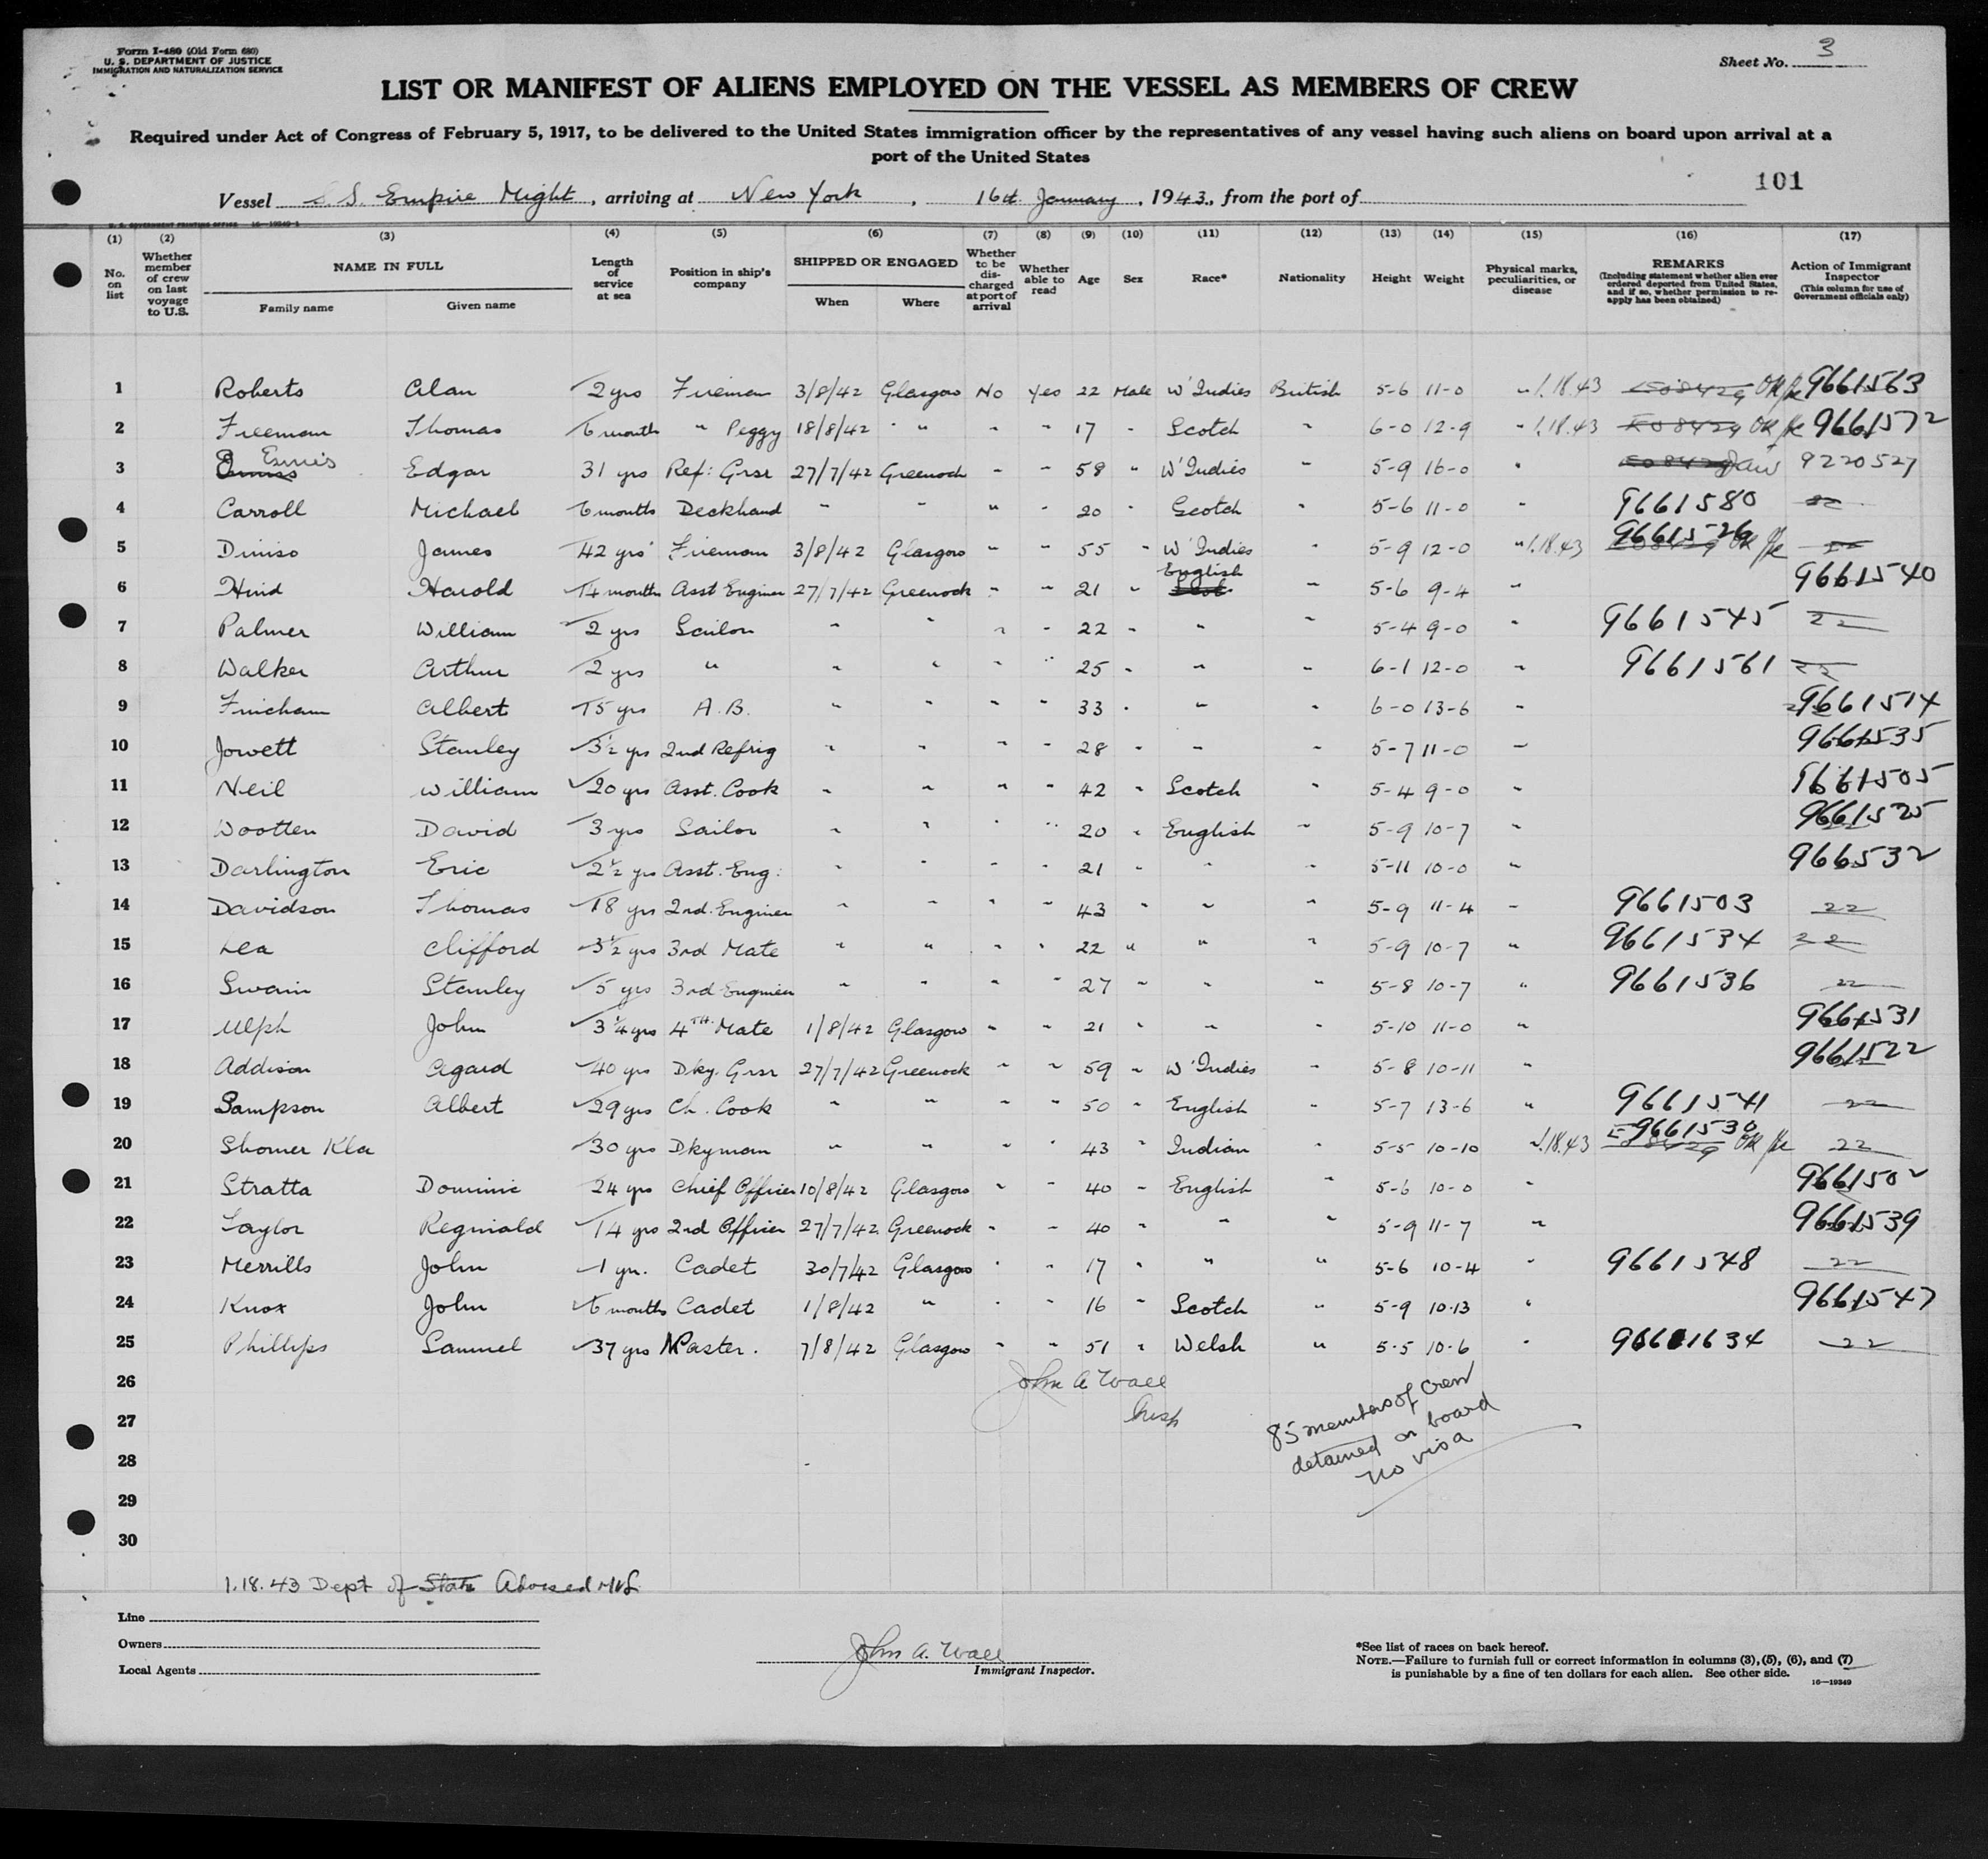 Form I-480 (Old Form 680)
U. S. DEPARTMENT OF JUSTICE
IMMIGRATION AND NATURALIZATION SERVICE
Sheet No. 3
LIST OR MANIFEST OF ALIENS EMPLOYED ON THE VESSEL AS MEMBERS OF CREW
Required under Act of Congress of February 5, 1917, to be delivered to the United States immigration officer by the representatives of any vessel having such aliens on board upon arrival at a
port of the United States
101
Vessel S.S. Empire Might, arriving at New York, 16th January, 1943, from the port of
(1) (2) (3) (4) (5) (6) (7) (8) (9) (10) (11) (12) (13) (14) (15) (16) (17)
No. on list
Whether member of crew on last voyage to U.S.
NAME IN FULL
Family name Given name
Length of service at sea
Position in ship's company
SHIPPED OR ENGAGED
When Where
Whether to be discharged at port of arrival
Whether able to read
Age
Sex
Race*
Nationality
Height
Weight
Physical marks, peculiarities, or disease
REMARKS
(Including statement whether alien ever ordered deported from United States, and if so, whether permission to reapply has been obtained)
Action of Immigrant Inspector
(This column for use of Government officials only)
1 Roberts Alan 2 yrs Fireman 3/8/42 Glasgow No Yes 22 Male W'Indies British 5-6 11-0 " 1.18.43 OK 9661563
2 Freeman Thomas 6 months " Peggy 18/8/42 " " " 17 " Scotch " 6-0 12-9 " 1.18.43 OK 9661572
3 Ennis Edgar 31 yrs Ref: Grsr 27/7/42 Greenock " " 58 " W'Indies " 5-9 16-0 " 9220527
4 Carroll Michael 6 months Deckhand " " " " 20 " Scotch " 5-6 11-0 " 9661580
5 James 42 yrs Fireman 3/8/42 Glasgow " " 55 " W'Indies " 5-9 12-0 " 1.18.43 9661526 OK
6 Hind Harold 14 months Asst Enginer 27/7/42 Greenock " " 21 " English " 5-6 9-4 " 9661540
7 Palmer William 2 yrs Sailor " " " " 22 " " " 5-4 9-0 " 9661545 22
8 Walker Arthur 2 yrs " " " " " 25 " " " 6-1 12-0 " 9661561 22
9 Fincham Albert 15 yrs A.B. " " " " 33 " " " 6-0 13-6 " 9661514
10 Jowett Stanley 3½ yrs 2nd Refrig " " " " 28 " " " 5-7 11-0 " 9661535
11 Neil William 20 yrs Asst. Cook " " " " 42 " Scotch " 5-4 9-0 " 9661505
12 Wootten David 3 yrs Sailor " " " " 20 " English " 5-9 10-7 " 9661525
13 Darlington Eric 2½ yrs Asst. Eng: " " " " 21 " " 5-11 10-0 " 966532
14 Davidson Thomas 18 yrs 2nd. Enginer " " " " 43 " " " 5-9 11-4 " 9661503 22
15 Lea Clifford 3½ yrs 3rd Mate " " " " 22 " " " 5-9 10-7 " 9661534 22
16 Swain Stanley 5 yrs 3rd Enginer " " " " 27 " " " 5-8 10-7 " 9661536 22
17 Ulph John 3¼ yrs 4TH Mate 1/8/42 Glasgow " " 21 " " " 5-10 11-0 " 9661531
18 Addison Agard 40 yrs Dky. Grsr 27/7/42 Greenock " " 59 " W'Indies " 5-8 10-11 " 9661522
19 Sampson Albert 29 yrs Ch. Cook " " " " 50 " English " 5-7 13-6 " 9661541 22
20 Shomer Kla 30 yrs Dkyman " " " " 43 " Indian " 5-5 10-10 1.18.43 9661530 OK 22
21 Stratta Dominic 24 yrs Chief Officer 10/8/42 Glasgow " " 40 " English " 5-6 10-0 " 9661502
22 Taylor Reginald 14 yrs 2nd Officer 27/7/42 Greenock " " 40 " " " 5-9 11-7 " 9661539
23 Merrills John 1 yr. Cadet 30/7/42 Glasgow " " 17 " " " 5-6 10-4 " 9661548 22
24 Knox John 6 months Cadet 1/8/42 " " " 16 " Scotch " 5-9 10.13 " 9661547
25 Phillips Samuel 37 yrs Master. 7/8/42 Glasgow " " 51 " Welsh " 5.5 10.6 " 9661634 22
26 John A Wall
27 Insp
85 members of crew
detained on board
no visa
28
29
30
1.18.43 Dept of State Advised
Line
Owners
Local Agents
John A. Wall
Immigrant Inspector.
*See list of races on back hereof.
NOTE.—Failure to furnish full or correct information in columns (3), (5), (6), and (7)
is punishable by a fine of ten dollars for each alien. See other side.
16—19349